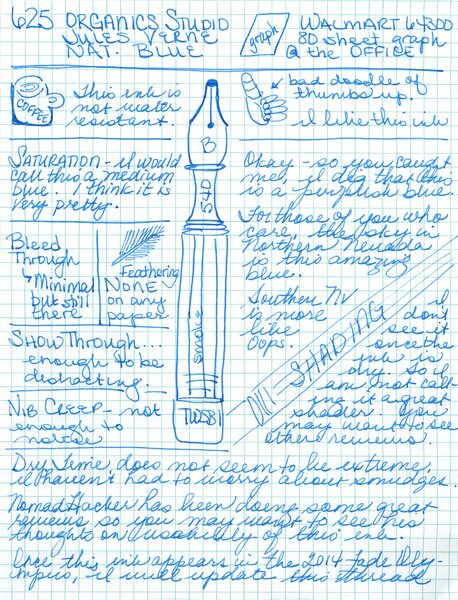 625 ORGANICS STUDIO
JULES VERNE
NAT. BLUE
graph
WALMART 64300
80 sheet graph
@ the OFFICE
COFFEE
This ink is
not water
resistant.
bad doodle of
thumbs up.
I like this ink
SATURATION - I would
call this a medium
blue. I think it is
very pretty.
Okay - so you caught
me, I dig that this
is a purplish blue.
For those of you who
care, the sky in
Northern Nevada
is this amazing
blue.
Southern NV
is more
like
Oops.
Bleed
Through
Minimal
but still
there
Feathering
NONE
on any
papers
SHOW THROUGH...
enough to be
distracting.
NIB CREEP - not
enough to
notice
B
540
smoke
TWSBI
SHADING
I
don't
see it
once the
ink is
dry. So I
am not call-
ing it a great
shader. You
may want to see
other reviews.
Dry Time, does not seem to be extreme,
I haven't had to worry about smudges.
NomadHacker has been doing some great
reviews so you may want to see his
thoughts on usability of this ink.
Once this ink appears in the 2014 Fade Oly-
mpics, I will update this thread